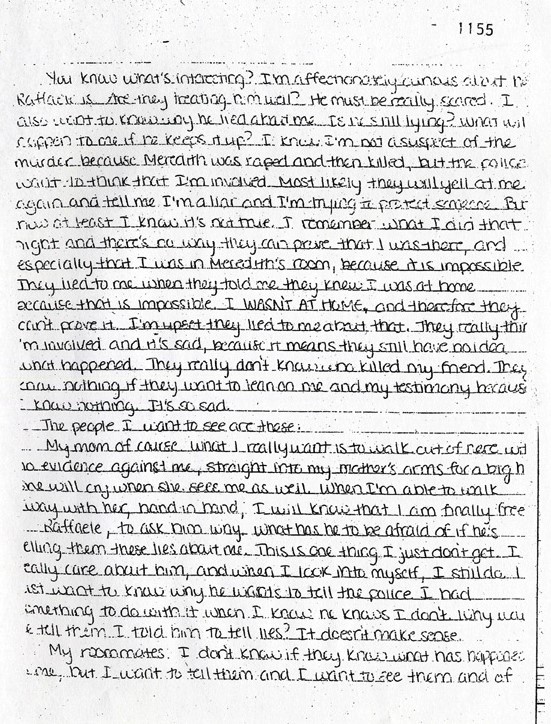 1155
You know what's interesting? I'm affectionately curious about h
Raffaele is. Are they treating him well? He must be really scared. I
also want to know why he lied about me. Is he still lying? What will
happen to me if he keeps it up? I know I'm not a suspect of the
murder because Meredith was raped and then killed, but the police
want to think that I'm involved. Most likely they will yell at me
again and tell me I'm a liar and I'm trying to protect someone. But
now at least I know it's not true. I remember what I did that
night and there's no way they can prove that I was there, and
especially that I was in Meredith's room, because it is impossible.
They lied to me when they told me they knew I was at home
because that is impossible. I WASN'T AT HOME, and therefore they
can't prove it. I'm upset they lied to me about that. They really thin
'm involved and it's sad, because it means they still have no idea
what happened. They really don't know who killed my friend. They
know nothing if they want to lean on me and my testimony becaus
know nothing. It's so sad.
The people I want to see are these:
My mom of course. What I really want is to walk out of here wit
no evidence against me, straight into my mother's arms for a big h
he will cry when she sees me as well. When I'm able to walk
way with her, hand in hand, I will know that I am finally free
Raffaele, to ask him why. What has he to be afraid of if he's
elling them these lies about me. This is one thing I just don't get. I
eally care about him, and when I look into myself, I still do. I
ust want to know why he wants to tell the police I had
omething to do with it when I know he knows I don't. Why wou
e tell them I told him to tell lies? It doesn't make sense.
My roommates. I don't know if they know what has happene
me, but I want to tell them and I want to see them and of